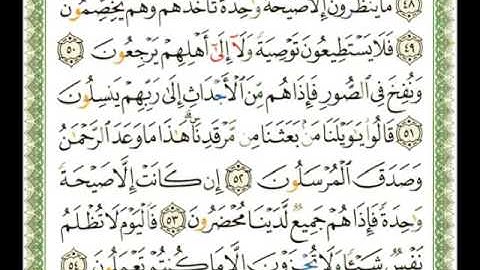 ٤٨ مَا يَنظُرُونَ إِلَّا صَيْحَةً وَٰحِدَةً تَأْخُذُهُمْ وَهُمْ يَخِصِّمُونَ
٤٩ فَلَا يَسْتَطِيعُونَ تَوْصِيَةً وَلَآ إِلَىٰٓ أَهْلِهِمْ يَرْجِعُونَ ٥٠
وَنُفِخَ فِى ٱلصُّورِ فَإِذَا هُم مِّنَ ٱلْأَجْدَاثِ إِلَىٰ رَبِّهِمْ يَنسِلُونَ
٥١ قَالُوا۟ يَٰوَيْلَنَا مَنۢ بَعَثَنَا مِن مَّرْقَدِنَا ۜ ۗ هَٰذَا مَا وَعَدَ ٱلرَّحْمَٰنُ
وَصَدَقَ ٱلْمُرْسَلُونَ ٥٢ إِن كَانَتْ إِلَّا صَيْحَةً
وَٰحِدَةً فَإِذَا هُمْ جَمِيعٌ لَّدَيْنَا مُحْضَرُونَ ٥٣ فَٱلْيَوْمَ لَا تُظْلَمُ
نَفْسٌ شَيْـًٔا وَلَا تُجْزَوْنَ إِلَّا مَا كُنتُمْ تَعْمَلُونَ ٥٤